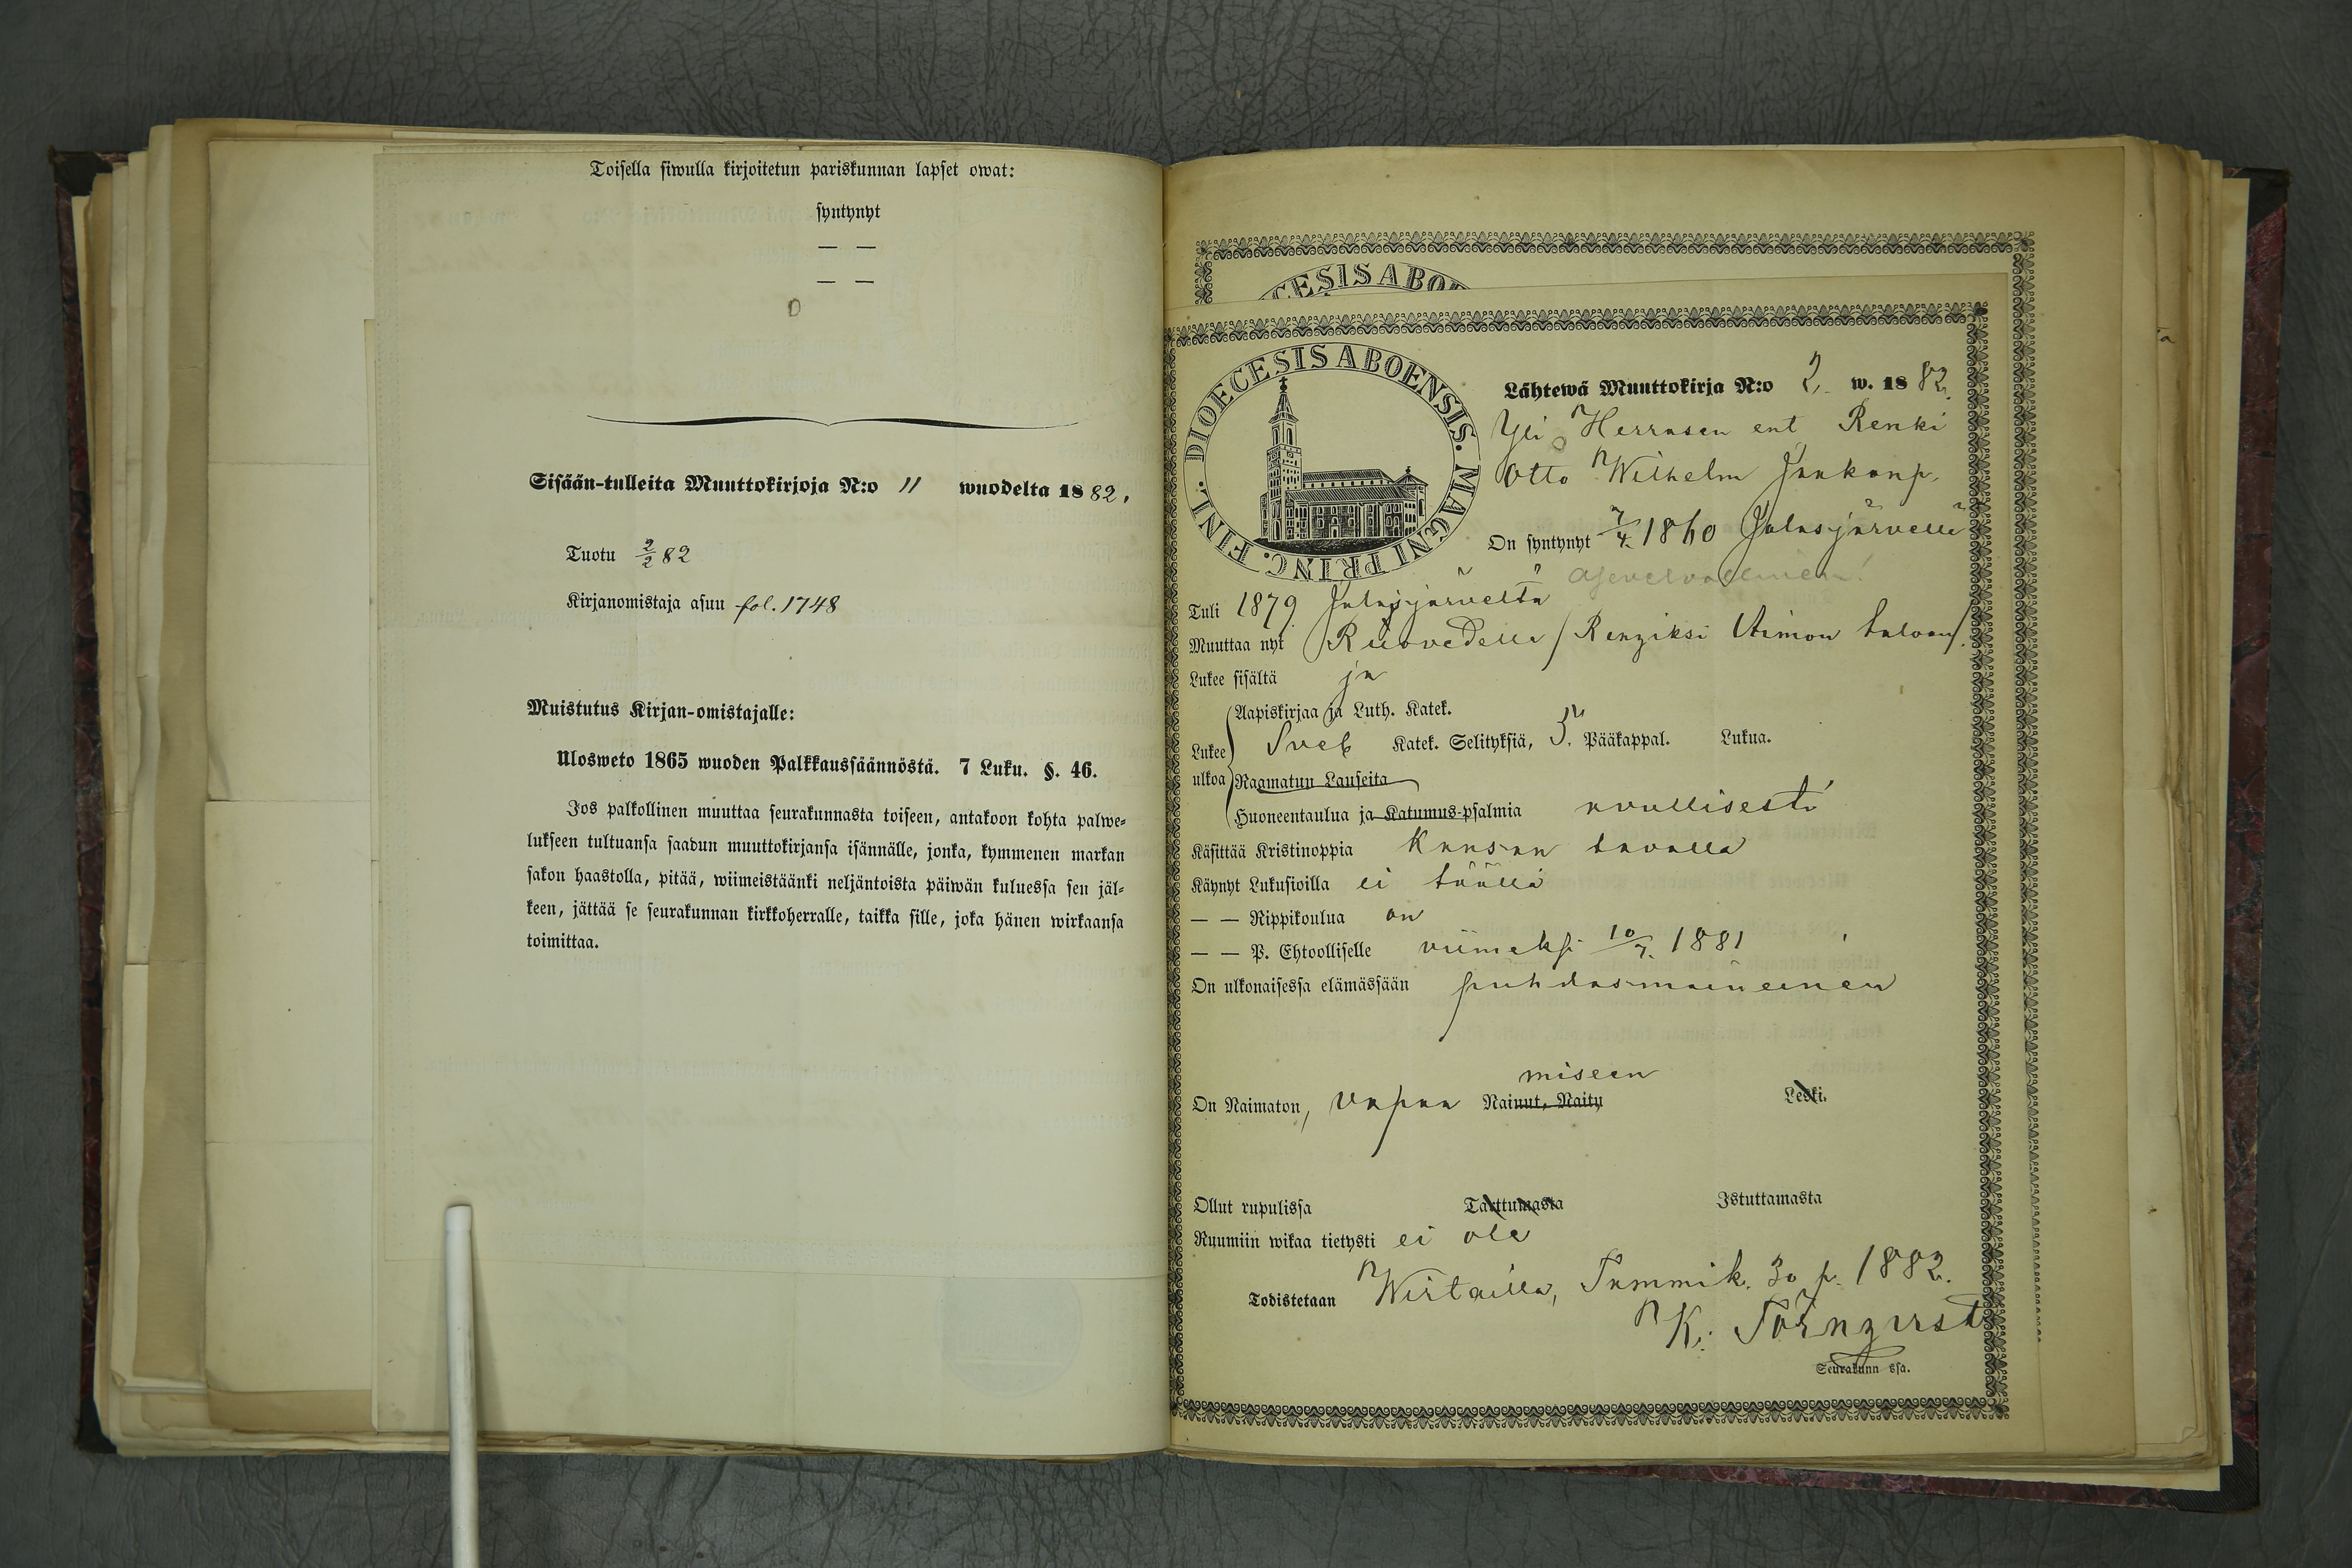 Toisella siwulla kirjoitetun pariskunnan lapset owat:
syntynyt
— —
— —
0
Sisään-tulleita Muuttokirjoja N:o 11 wuodelta 1882.
Tuotu 2/2 82
Kirjanomistaja asuu fol. 1748
Muistutus Kirjan-omistajalle:
Ulosweto 1865 wuoden Palkkaussäännöstä. 7 Luku. §. 46.
Jos palkollinen muuttaa seurakunnasta toiseen, antakoon kohta palwe-
lukseen tultuansa saadun muuttokirjansa isännälle, jonka, kymmenen markan
sakon haastolla, pitää, wiimeistäänki neljäntoista päiwän kuluessa sen jäl-
keen, jättää se seurakunnan kirkkoherralle, taikka sille, joka hänen wirkaansa
toimittaa.
CESIS ABOE
DIOECESIS ABOENSIS. MAGNI PRINC. FINL.
Lähtewä Muuttokirja N:o 2. w. 1882.
Yli Herrasen ent Renki
Otto Wilhelm Jaakonp.
On syntynyt 7/4 1860 Jalasjärvellä
asevelvollinen!
Tuli 1879 Jalasjärveltä
Muuttaa nyt Ruovedelle / Rengiksi Aimon taloon /.
Lukee sisältä ja
Aapiskirjaa ja Luth. Katek.
Lukee Sveb Katek. Selityksiä, 5. Pääkappal. Lukua.
ulkoa Raamatun Lauseita
Huoneentaulua ja Katumus-psalmia avullisesti
Käsittää Kristinoppia Kansan tavalla
Käynyt Lukusioilla ei täällä
— — Rippikoulua on
— — P. Ehtoolliselle viimeksi 10/7. 1881
On ulkonaisessa elämässään puhdasmaineinen
miseen
On Naimaton, vapaa Nainut, Naitu Leski.
Ollut rupulissa Tarttumasta Istuttamasta
Ruumiin wikaa tietysti ei ole
Todistetaan Wirtailla, Tammik. 30 p. 1882.
K. Törnqvist
Seurakunn ssa.